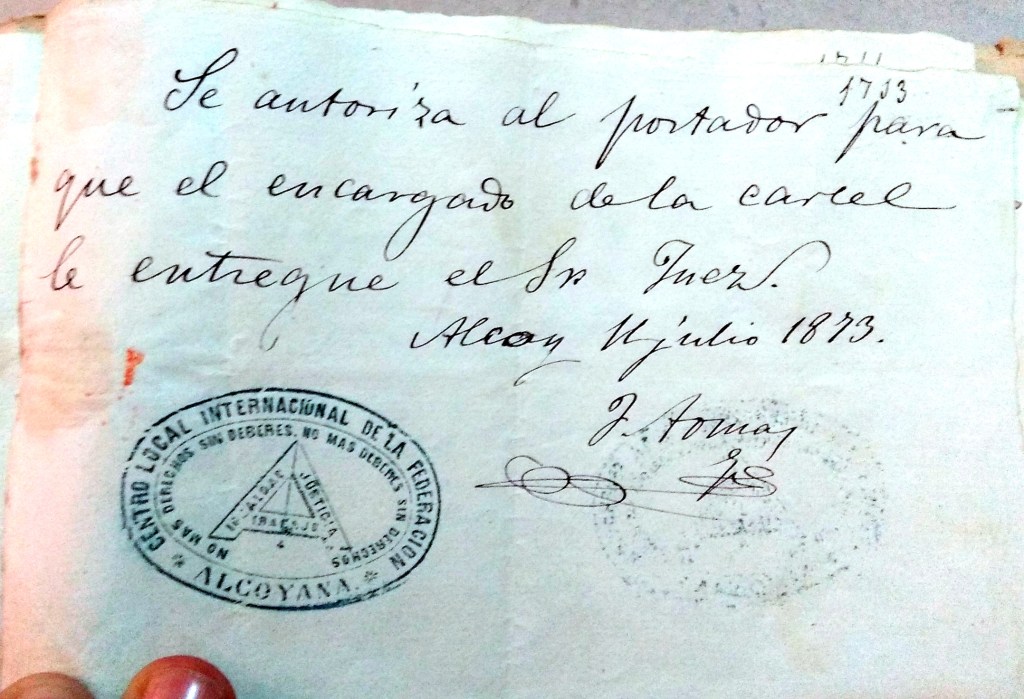 1711
1713
Se autoriza al portador para
que el encargado de la carcel
le entregue el Sr Juez.
Alcoy 11 julio 1873.
F. Tomas
CENTRO LOCAL INTERNACIONAL DE LA FEDERACION
NO MAS DERECHOS SIN DEBERES, NO MAS DEBERES SIN DERECHOS
IGUALDAD
JUSTICIA
TRABAJO
* ALCOYANA. *